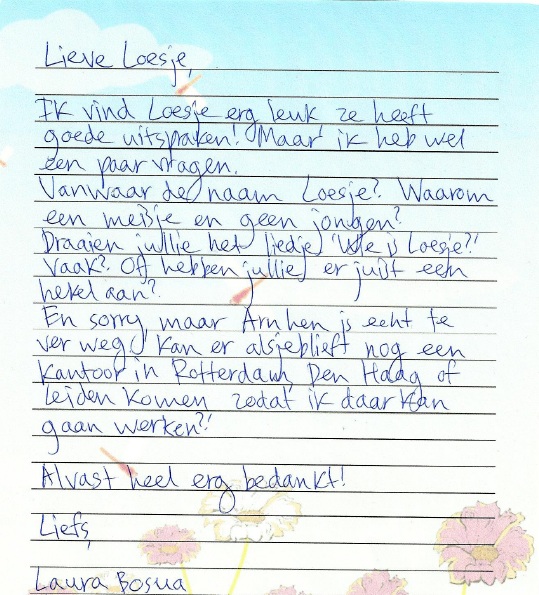 Lieve Loesje,
Ik vind Loesje erg leuk ze heeft
goede uitspraken! Maar ik heb wel
een paar vragen.
Vanwaar de naam Loesje? Waarom
een meisje en geen jongen?
Draaien jullie het liedje 'Wie is Loesje?'
vaak? Of hebben jullie er juist een
hekel aan?
En sorry, maar Arnhen is echt te
ver weg! Kan er alsjeblieft nog een
kantoor in Rotterdam, Den Haag of
Leiden komen zodat ik daar kan
gaan werken?!
Alvast heel erg bedankt!
Liefs,
Laura Bosua